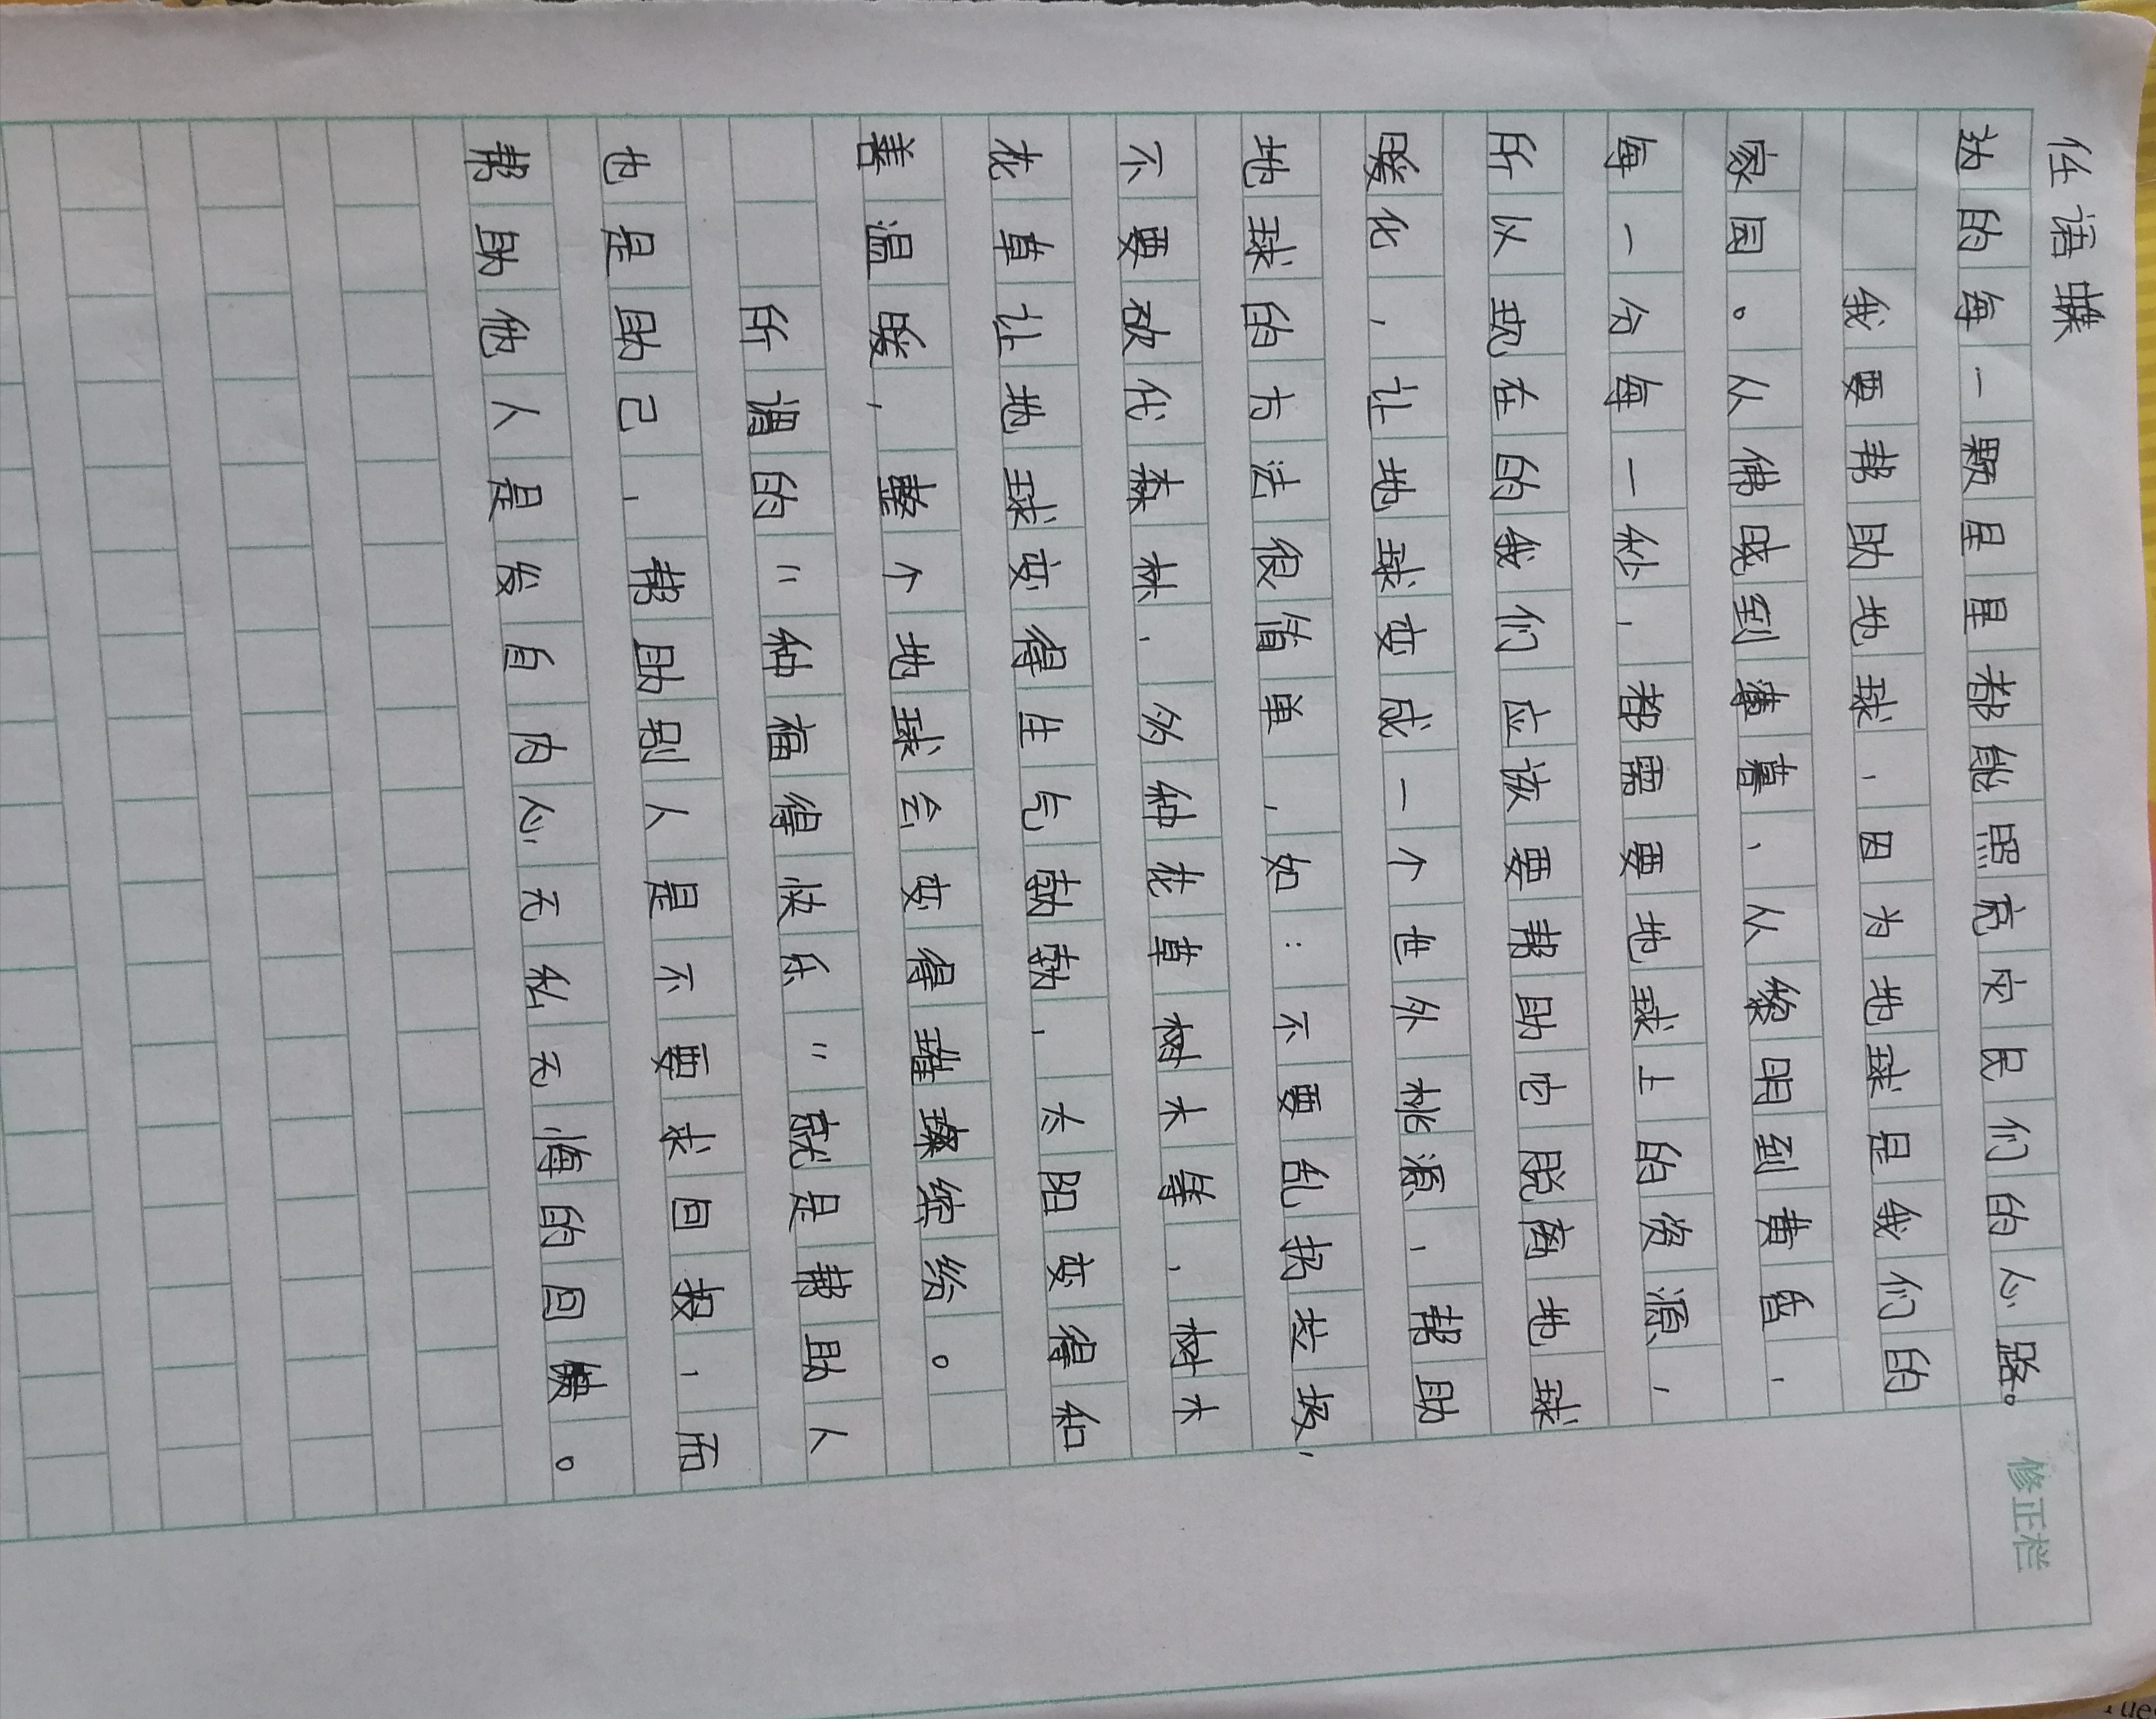 任语蝶
边的每一颗星星都能照亮灾民们的心路。
修正栏
我要帮助地球，因为地球是我们的
家园。从佛晓到薄暮、从黎明到黄昏，
每一分每一秒，都需要地球上的资源，
所以现在的我们应该要帮助它脱离地球
暖化，让地球变成一个世外桃源，帮助
地球的方法很简单，如：不要乱扔垃圾，
不要砍伐森林，多种花草树木等，树木
花草让地球变得生气勃勃，太阳变得和
善温暖，整个地球会变得璀璨缤纷。
所谓的"种福得快乐"就是帮助人
也是助己，帮助别人是不要求回报，而
帮助他人是发自内心无私无悔的回馈。